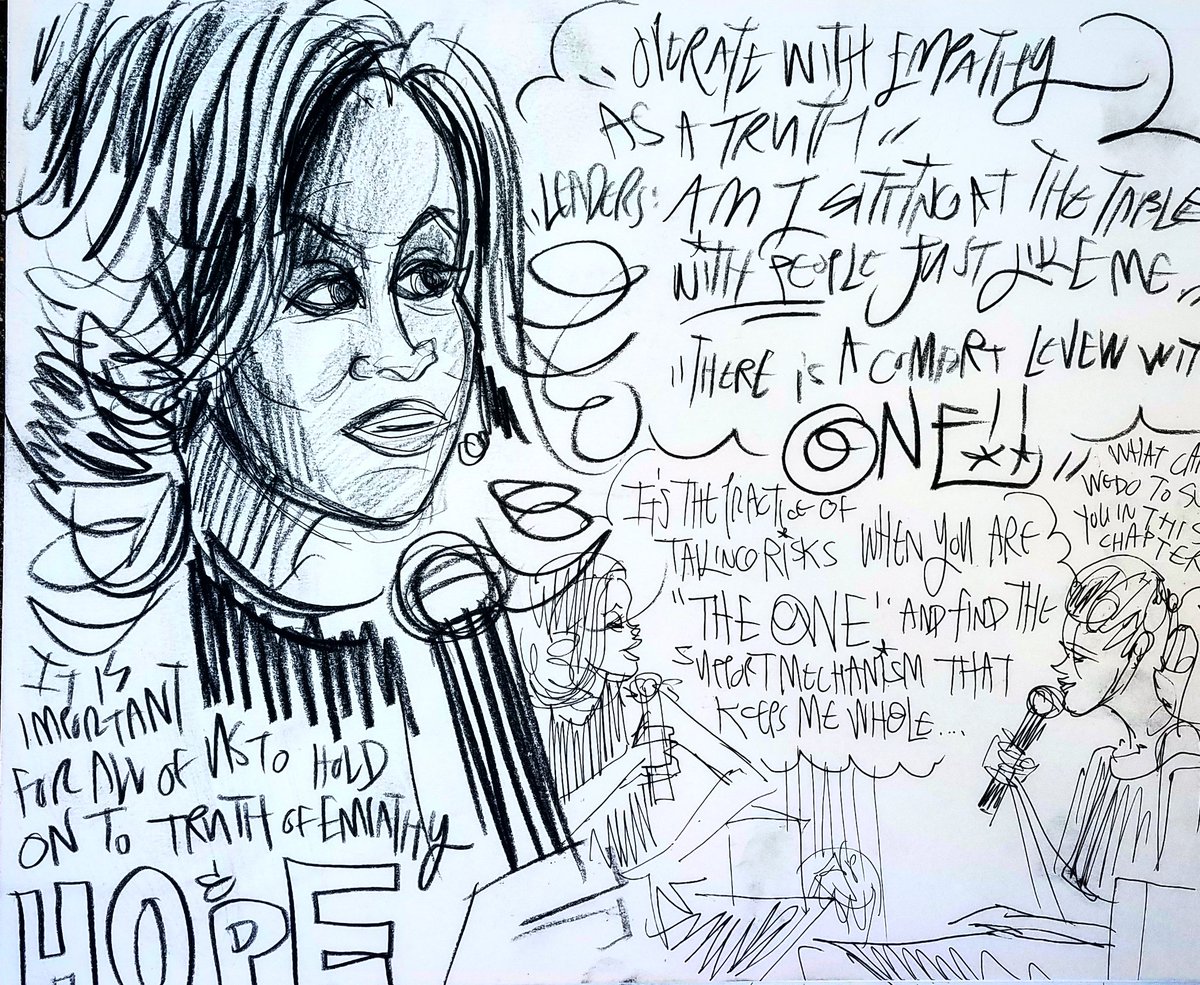 "OPERATE WITH EMPATHY
AS A TRUTH"
"LEADERS: AM I SITTING AT THE TABLE
WITH PEOPLE JUST LIKE ME"
"THERE IS A COMFORT LEVEW WIT
ONE!!"
IT'S THE PRACTICE OF
TAKING RISKS WHEN YOU ARE
"THE ONE" AND FIND THE
SUPPORT MECHANISM THAT
KEEPS ME WHOLE....
WHAT CA
WE DO TO S
YOU IN THIS
CHAPTER
IT IS
IMPORTANT
FOR ALL OF US TO HOLD
ON TO TRUTH OF EMPATHY
&
HOPE